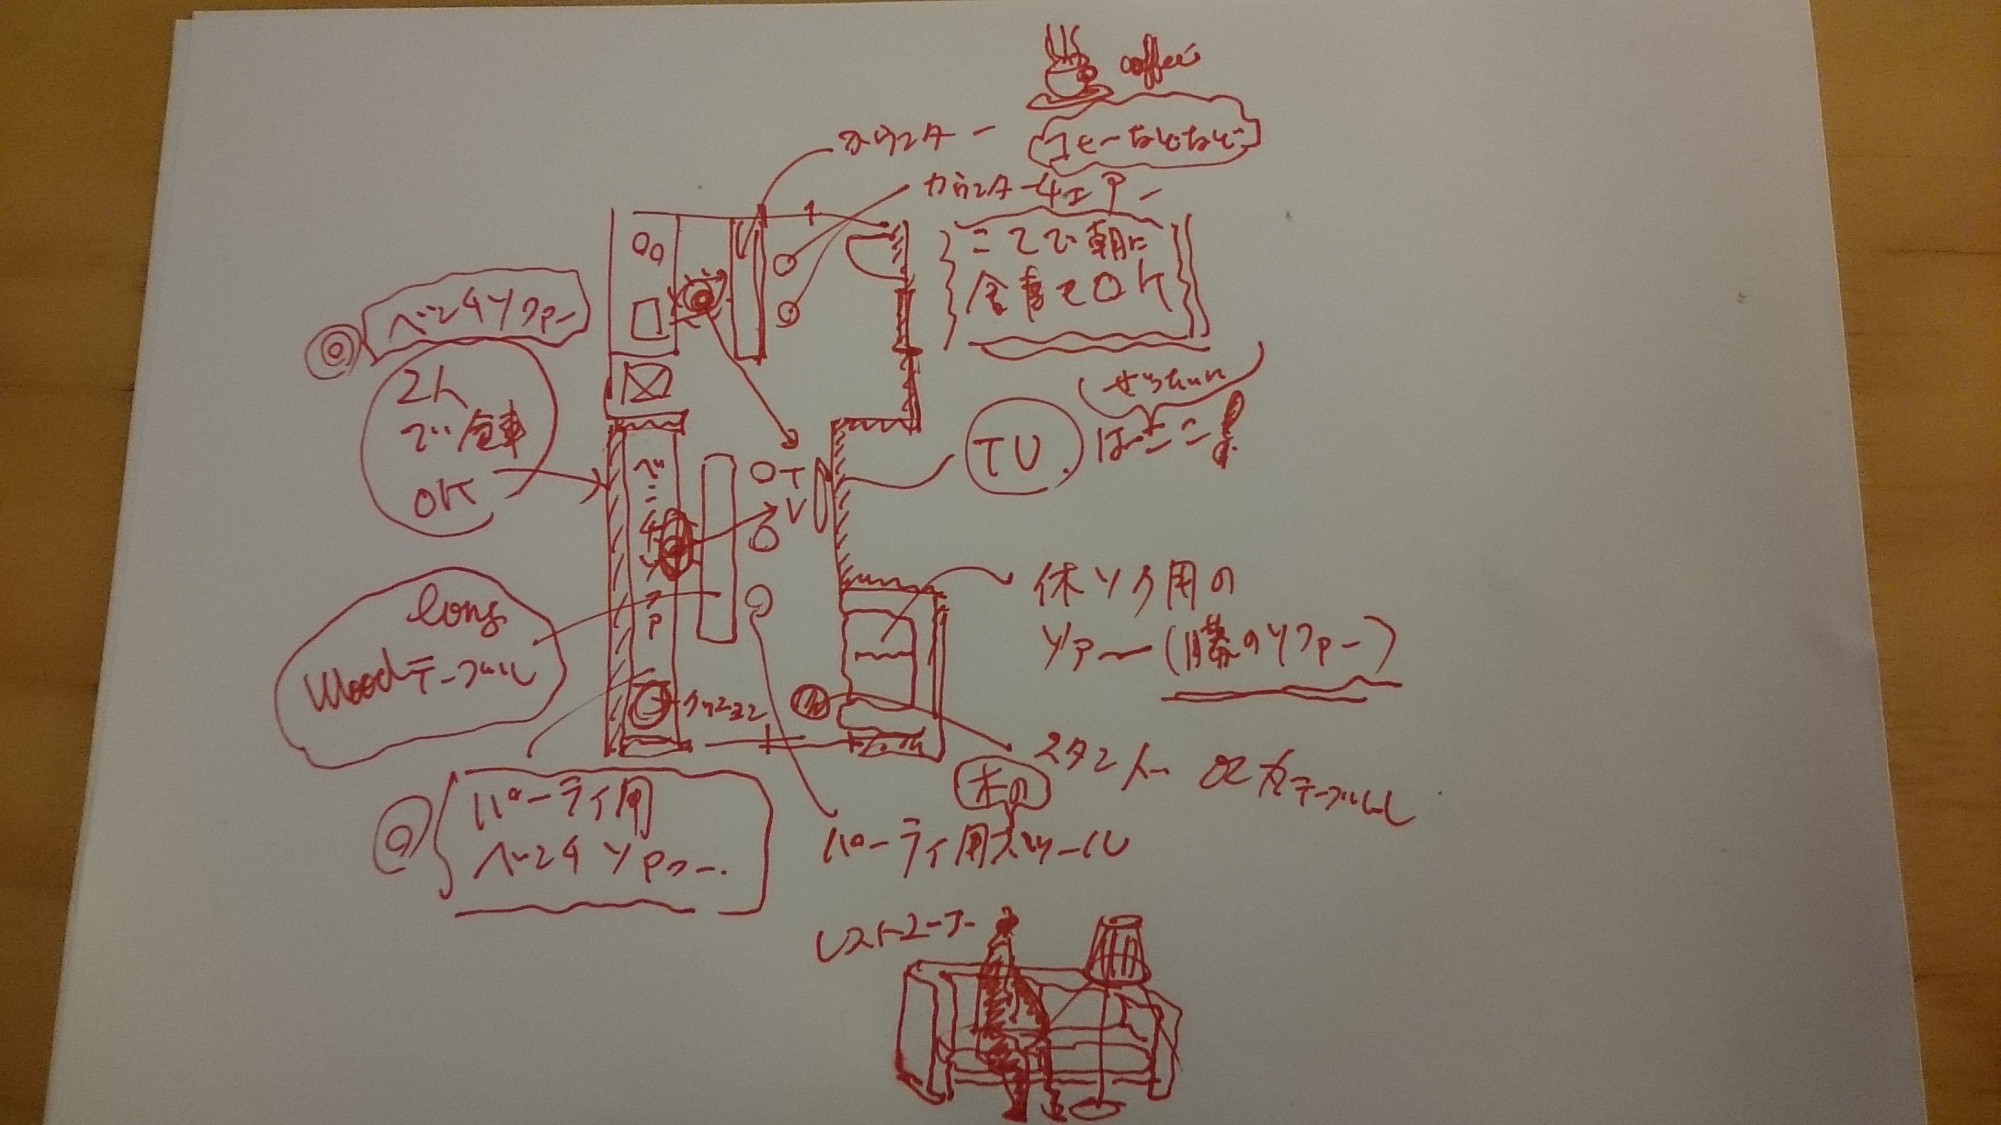 coffee
カウンター
コーヒーなどなど
カウンターチェアー
ここで朝に
食事もOK
ベンチソファー
2人
で食事
OK
TV
ぜったいに
はここ!
TV
ベンチソファ
long
Woodテーブル
休ソク用の
ソファー(勝のソファー)
クッション
スタンド or 丸テーブル
木の
パーティ用スツール
パーティ用
ベンチソファー
レストコーナー